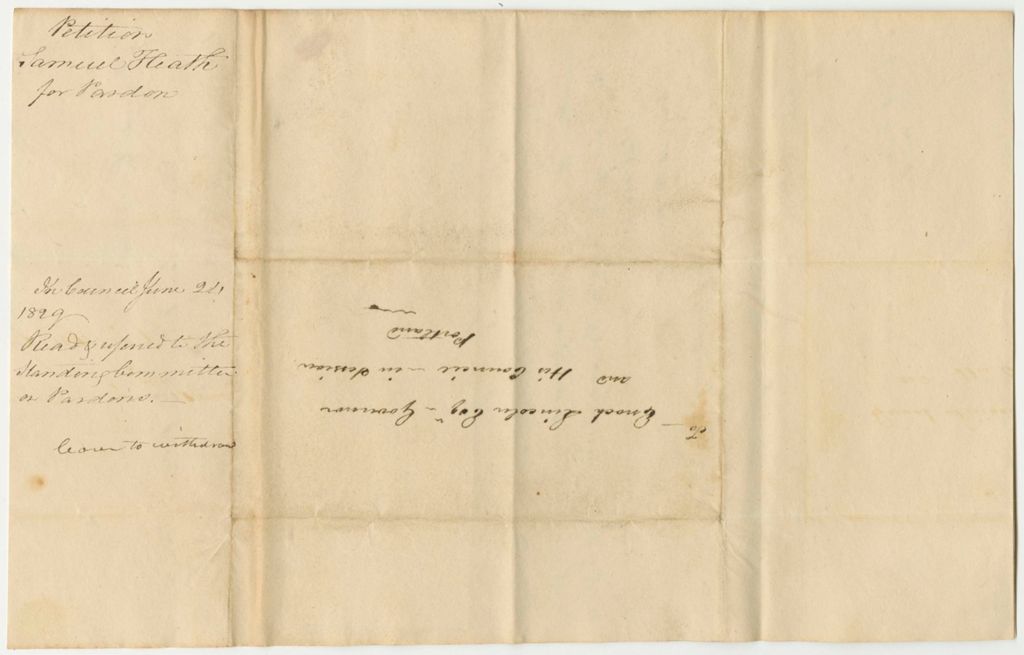 Petition
Samuel Heath
for Pardon
In Council June 24,
1829
Read & referred to the
Standing Committee
on Pardons.
leave to withdraw
To — Enoch Lincoln Esqr - Governor
and His Council - in Session
Portland